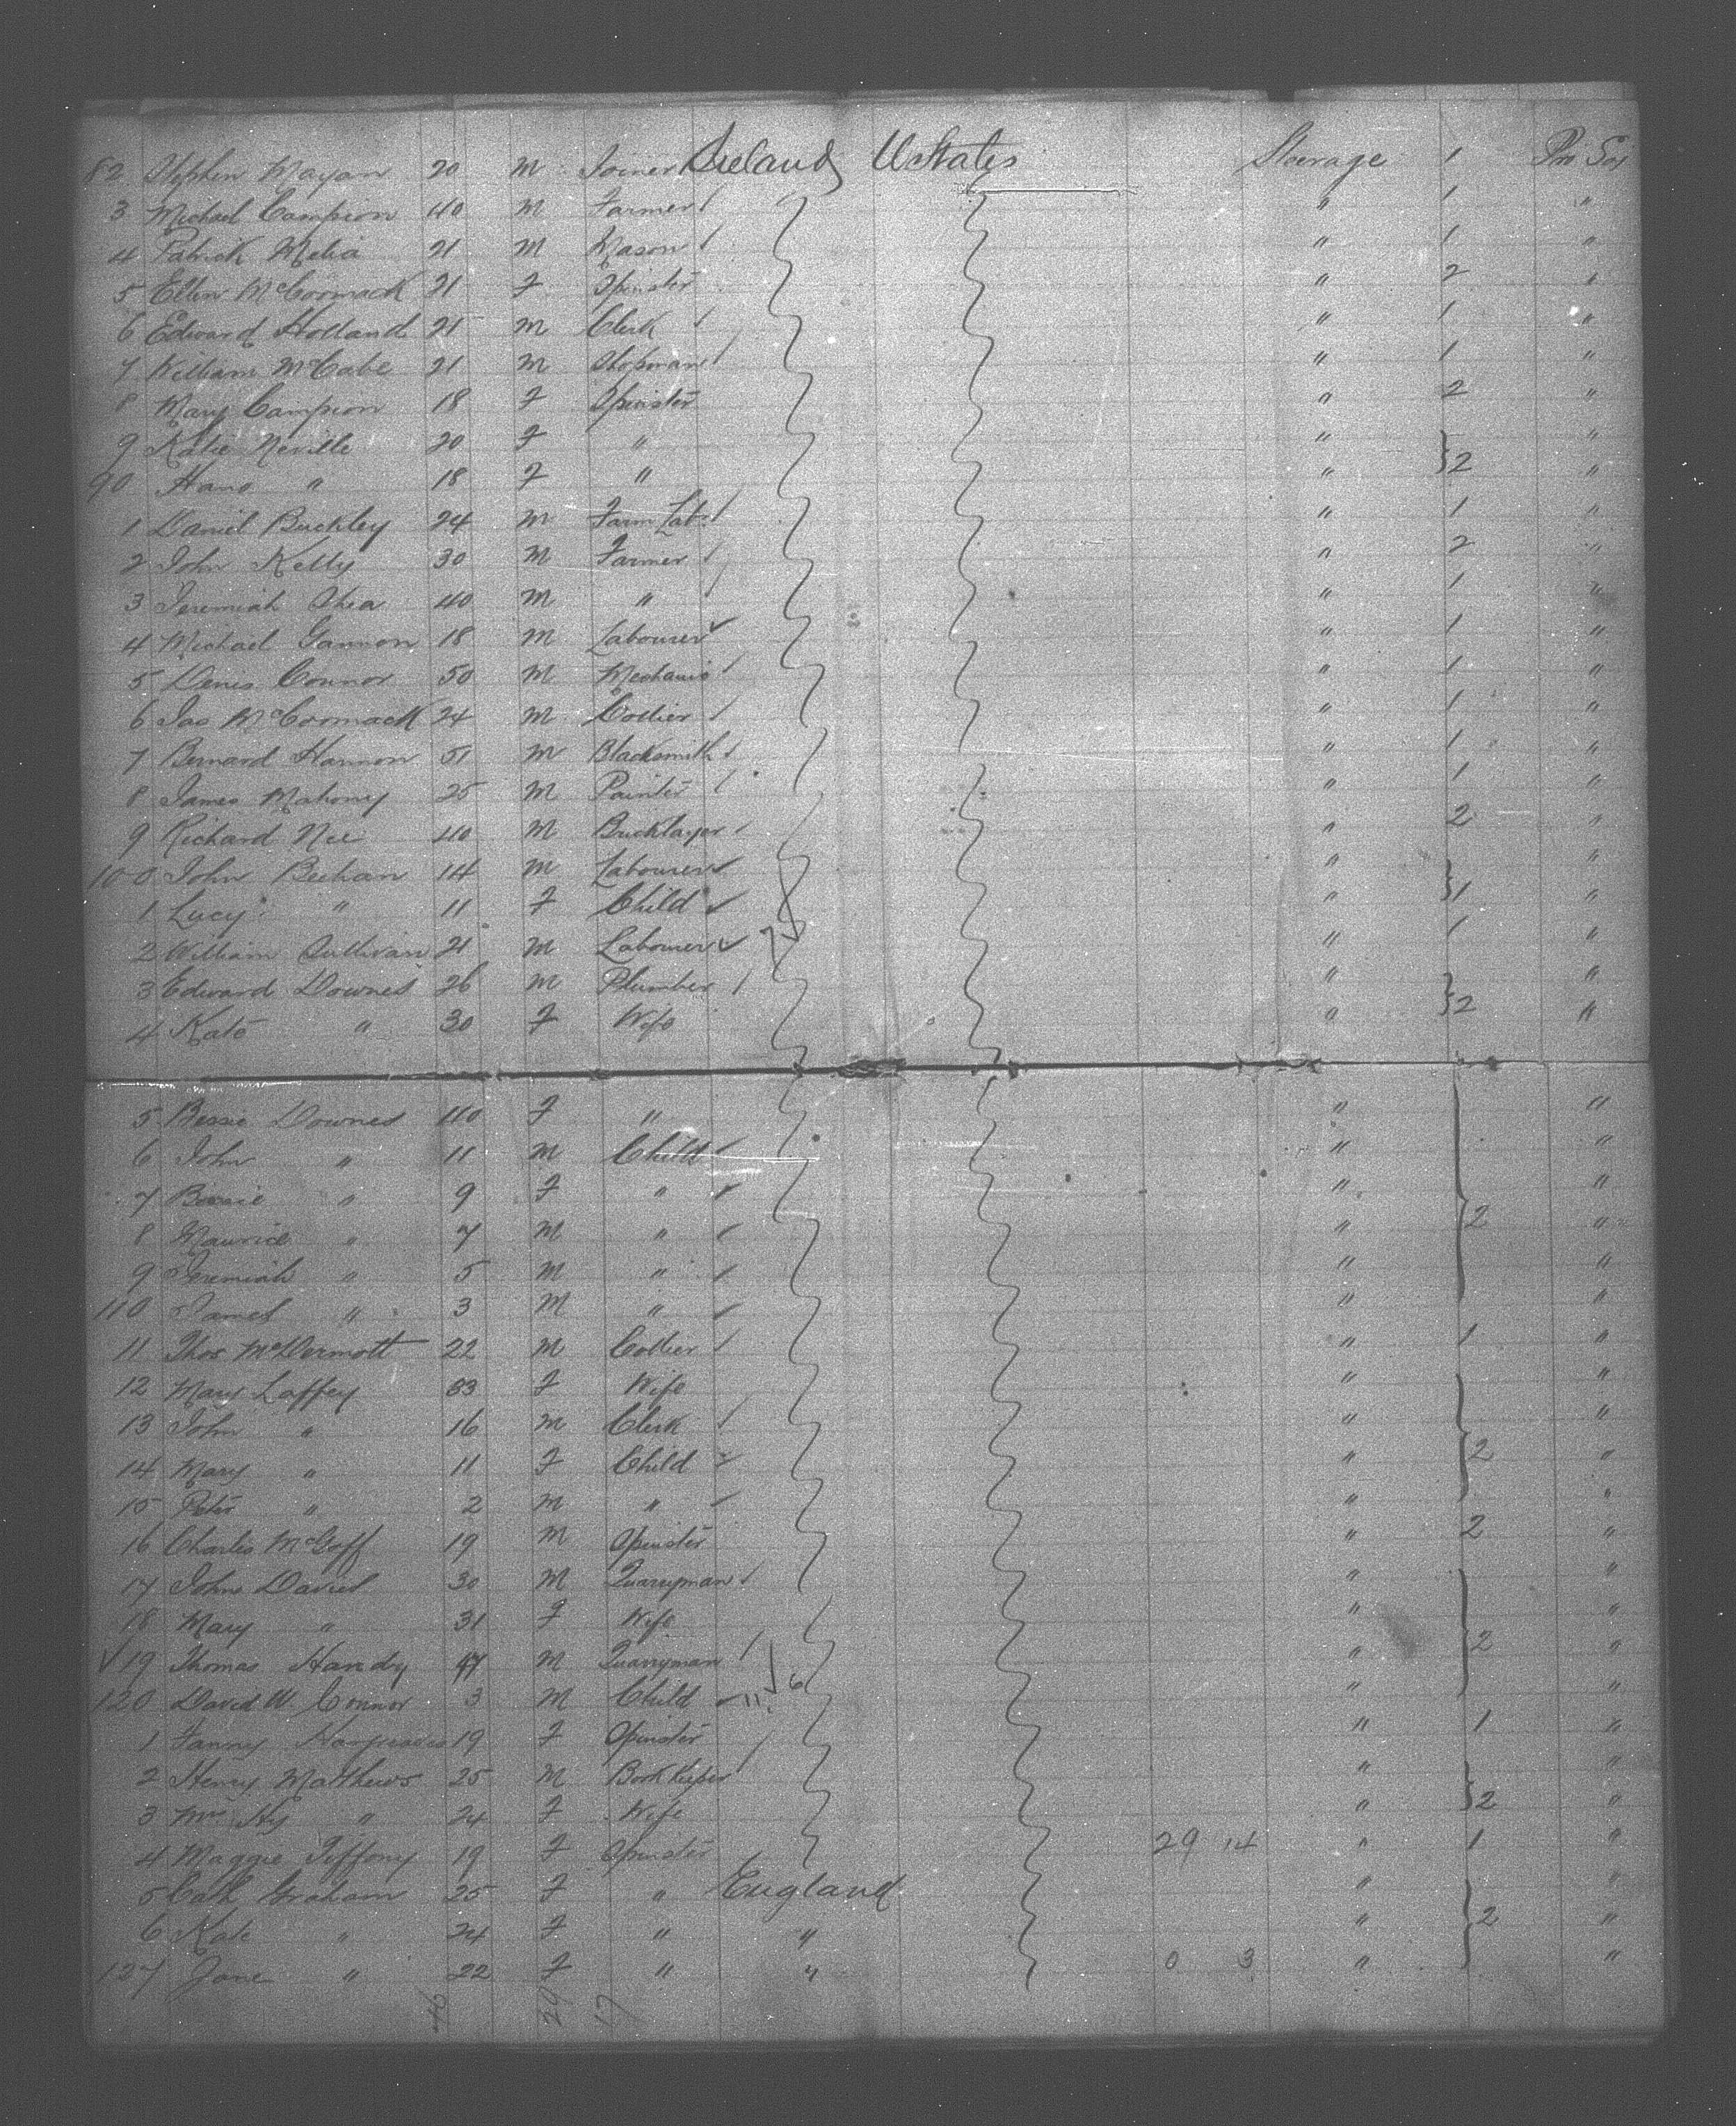 82 Stephen Mayan 20 M Joiner Ireland UStates Steerage 1
3 Michael Campion 40 M Farmer " 1 "
4 Patrick Melia 21 M Mason " 1 "
5 Ellen McCormack 21 F Spinster " 2 "
6 Edward Holland 25 M Clerk " 1 "
7 William McCabe 21 M Shopman " 1 "
8 Mary Campion 18 F Spinster " 2 "
9 Katie Neville 20 F " " "
90 Hano " 18 F " " 2 "
1 Daniel Buckley 24 M Farm Lab. " 1 "
2 John Kelly 30 M Farmer " 2 "
3 Jeremiah Shea 40 M " " 1 "
4 Michael Gannon 18 M Labourer " 1 "
5 Denis Connor 50 M Mechanic " 1 "
6 Jas McCormack 24 M Collier " 1 "
7 Bernard Hannon 51 M Blacksmith " 1 "
8 James Mahony 25 M Painter " 1 "
9 Richard Nee 40 M Bricklayer " 2 "
100 John Beehan 14 M Labourer " "
1 Lucy " 11 F Child " 1 "
2 William Sullivan 21 M Labourer " 1 "
3 Edward Downes 26 M Plumber " "
4 Kate " 30 F Wife " 2 "
5 Bessie Downes 40 F " " "
6 John " 11 M Child " "
7 Bessie " 9 F " " "
8 Maurice " 7 M " " 2 "
9 Jeremiah " 5 M " " "
110 James " 3 M " " "
11 Thos McDermott 22 M Collier " 1 "
12 Mary Laffey 33 F Wife " "
13 John " 16 M Clerk " "
14 Mary " 11 F Child " 2 "
15 Peter " 2 M " " "
16 Charles McGoff 19 M Spinster " 2 "
17 John Davies 30 M Quarryman " "
18 Mary " 31 F Wife " "
19 Thomas Handy 47 M Quarryman 6 " 2 "
120 David W. Connor 3 M Child 11 " "
1 Fanny Hargreaves 19 F Spinster " 1 "
2 Henry Matthews 25 M Book keeper " "
3 Mrs Hy " 24 F Wife " 2 "
4 Maggie Tiffony 19 F Spinster 29 14 " 1 "
5 Cath Graham 25 F " England " "
6 Kate " 24 F " " " 2 "
127 Jane " 22 F " " 0 3 " "
46 29 17